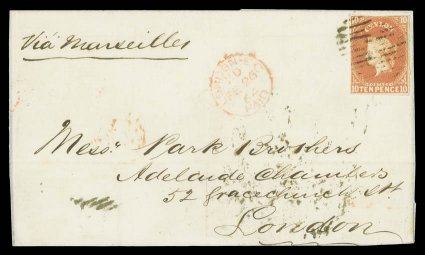 Via Marseilles
CEYLON
10 TEN PENCE 10
LONDON
PAID
Messrs Park Brothers
Adelaide Chambers
52 Gracechurch St
London